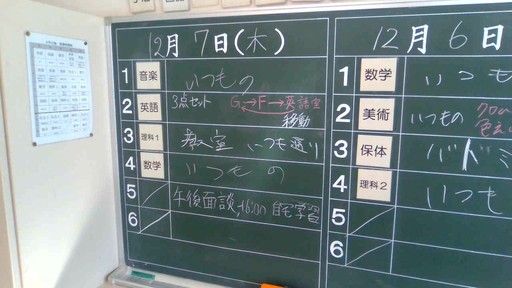 12月 7日(木)
1 音楽 いつもの
2 英語 3点セット G→F→英語室 移動
3 理科1 教室 いつも通り
4 数学 いつもの
5 午後面談,16:00 自宅学習
6
12月 6日
1 数学 いつも
2 美術 いつもの クロ
3 保体 バドミ
4 理科2 いつも
5
6